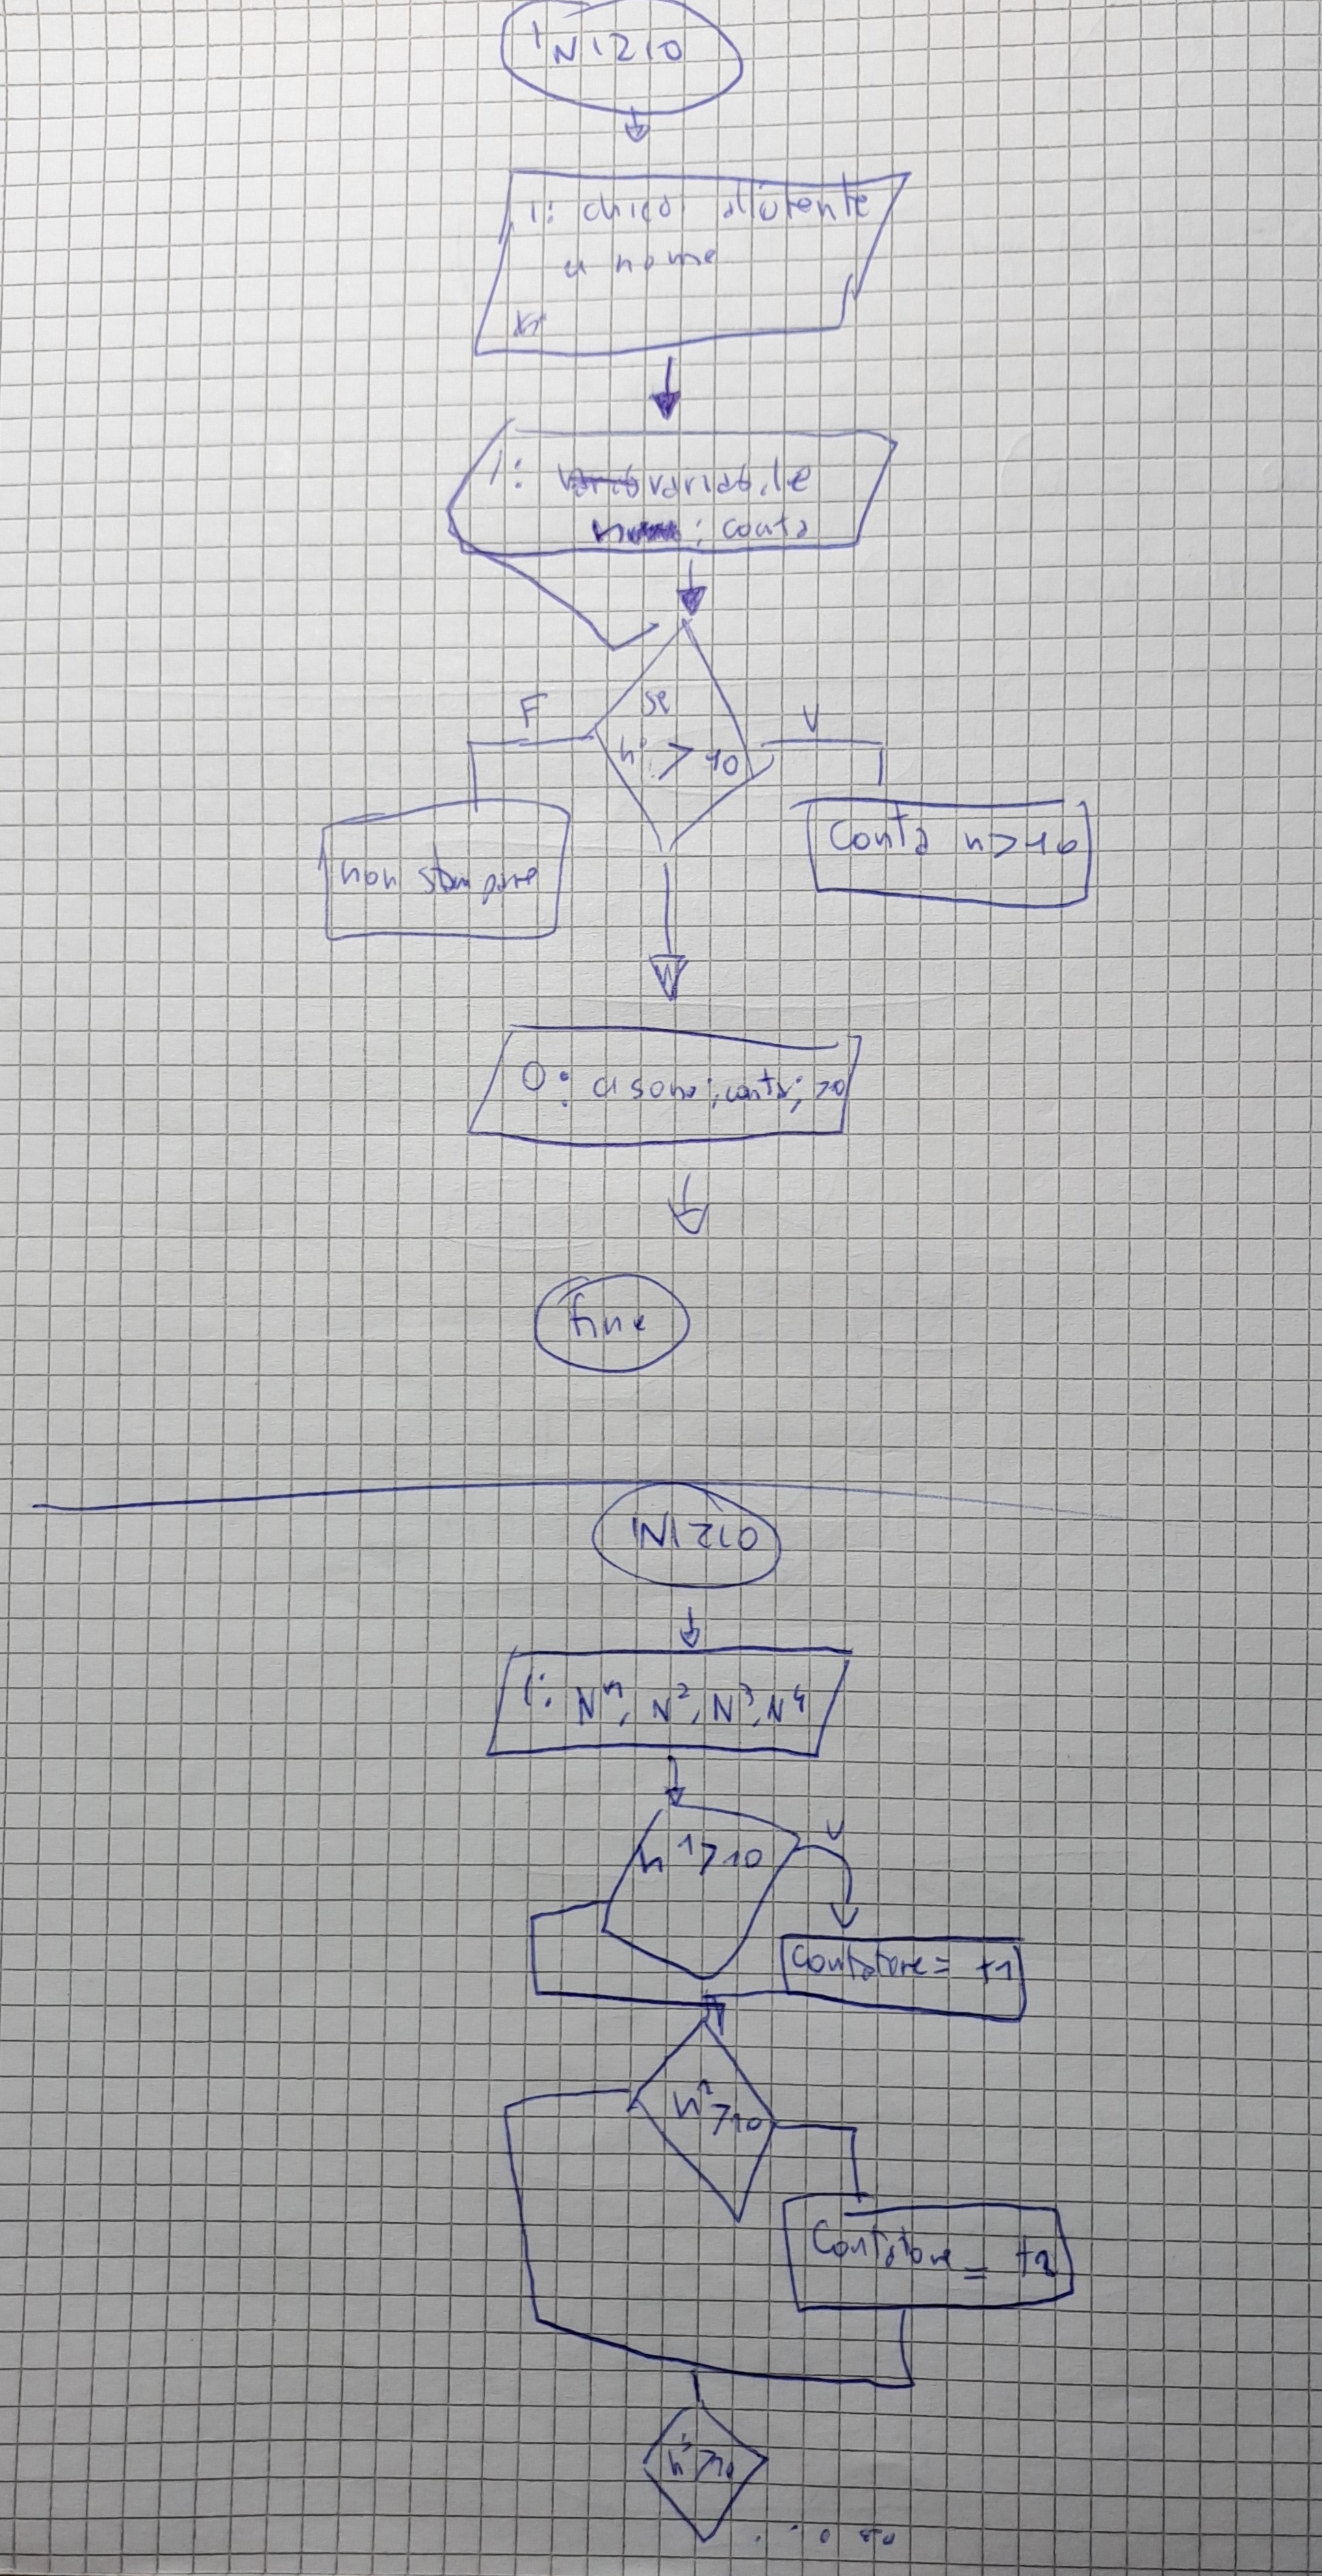 INIZIO
I: chiedi all'utente
4 nome
I: variabile
; conta
se
F
V
n° > 10
Conta n>10
non stampare
O: ci sono; conta; >10
fine
INIZIO
I: N1, N2, N3, N4
n1>10
V
Contatore = +1
n2>10
Contatore = +1
n3>10